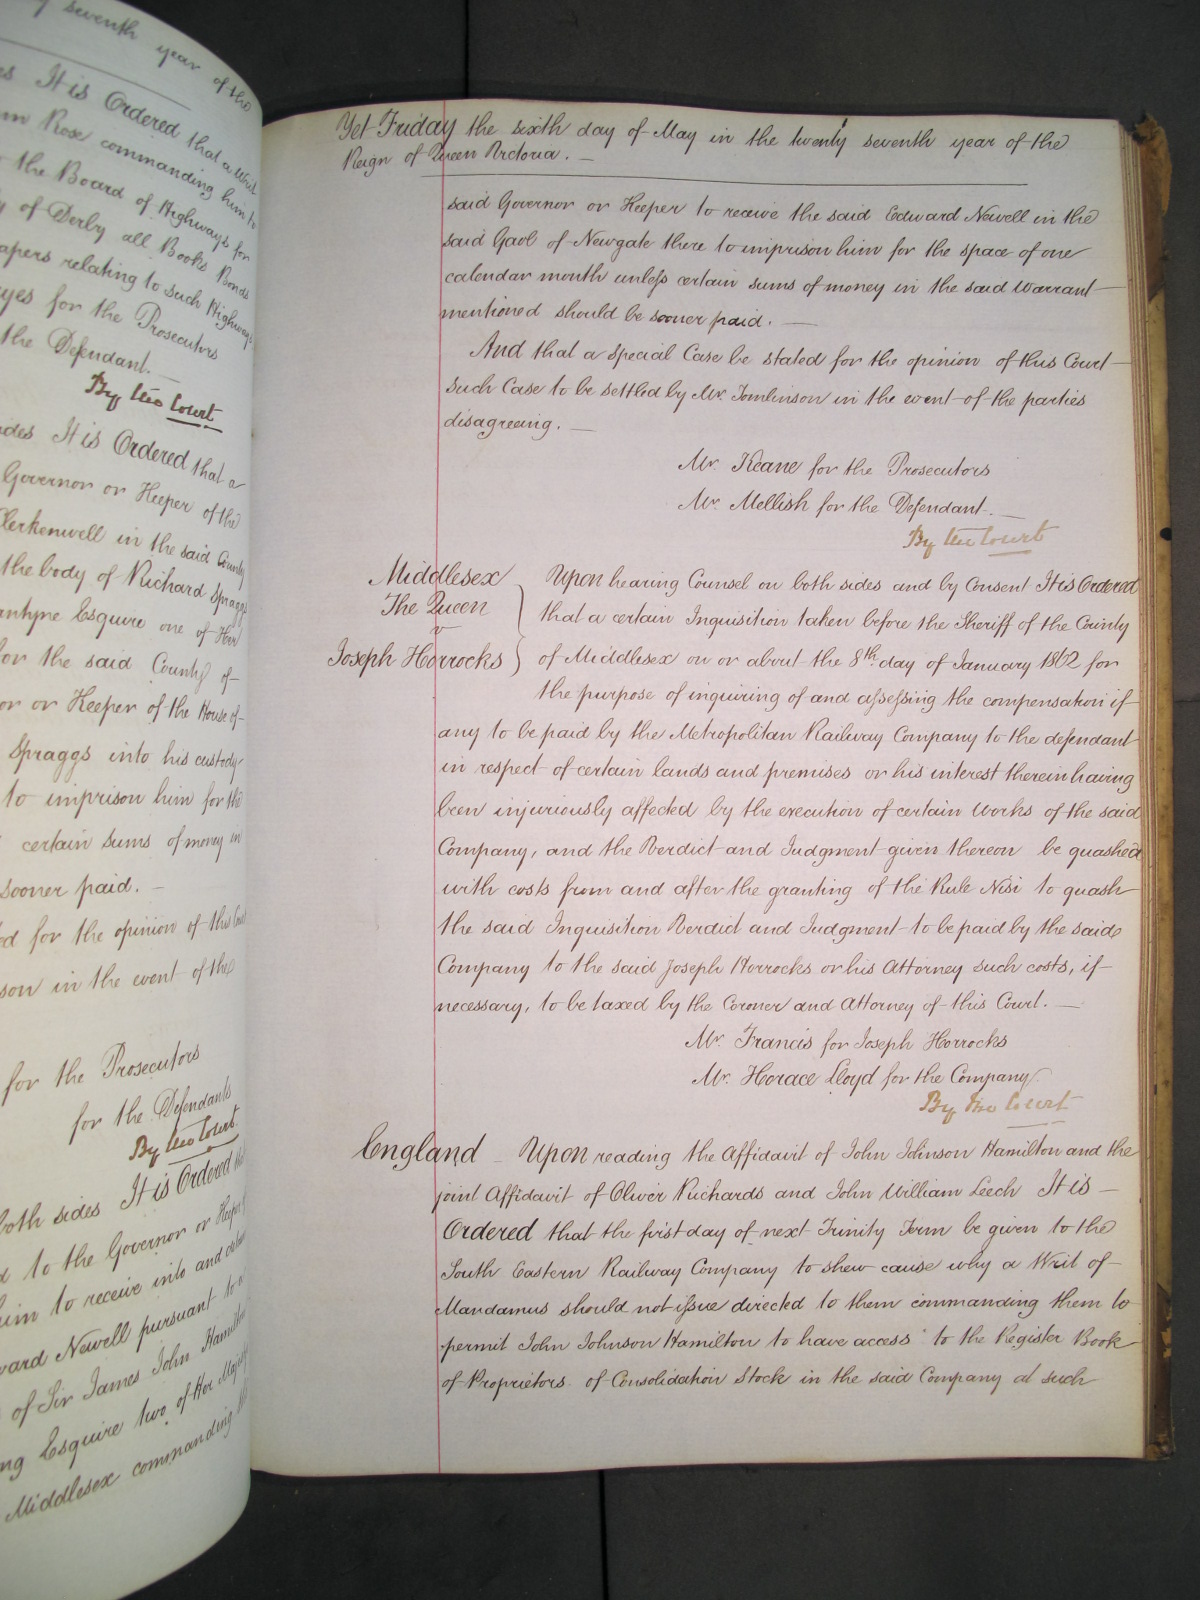 seventh year of the
It is Ordered that a Writ
Rose commanding him to
the Board of Highways for
of Derby all Books Bonds
papers relating to such Highways
for the Prosecutors
the Defendant.
By the Court
sides It is Ordered that a
Governor or Keeper of the
Clerkenwell in the said County
the body of Richard Spraggs
Esquire one of Her
for the said County of
or Keeper of the House of
Spraggs into his custody
to imprison him for the
certain sums of money in
sooner paid. —
for the opinion of this Court
in the event of the
for the Prosecutors
for the Defendants
By the Court.
both sides It is Ordered that
to the Governor or Keeper
him to receive into and detain
Newell pursuant to a
of Sir James John Hamilton
Esquire two of Her Majesty
Middlesex commanding
Yet Friday the sixth day of May in the twenty seventh year of the
Reign of Queen Victoria. —
said Governor or Keeper to receive the said Edward Newell in the
said Gaol of Newgate there to imprison him for the space of one
calendar month unless certain sums of money in the said Warrant
mentioned should be sooner paid. —
And that a Special Case be stated for the opinion of this Court
such Case to be settled by Mr. Tomlinson in the event of the parties
disagreeing. —
Mr. Keane for the Prosecutors
Mr. Mellish for the Defendant. —
By the Court
Middlesex Upon hearing Counsel on both sides and by Consent It is Ordered
The Queen that a certain Inquisition taken before the Sheriff of the County
v
Joseph Horrocks of Middlesex on or about the 8th day of January 1862 for
the purpose of inquiring of and assessing the compensation if
any to be paid by the Metropolitan Railway Company to the defendant
in respect of certain lands and premises or his interest therein having
been injuriously affected by the execution of certain Works of the said
Company, and the Verdict and Judgment given thereon be quashed
with costs from and after the granting of the Rule Nisi to quash
the said Inquisition Verdict and Judgment to be paid by the said
Company to the said Joseph Horrocks or his Attorney such costs, if
necessary, to be taxed by the Coroner and Attorney of this Court. —
Mr. Francis for Joseph Horrocks
Mr. Horace Lloyd for the Company
By the Court
England — Upon reading the Affidavit of John Johnson Hamilton and the
joint Affidavit of Oliver Richards and John William Leech It is —
Ordered that the first day of next Trinity Term be given to the
South Eastern Railway Company to shew cause why a Writ of
Mandamus should not issue directed to them commanding them to
permit John Johnson Hamilton to have access to the Register Book
of Proprietors of Consolidation Stock in the said Company at such